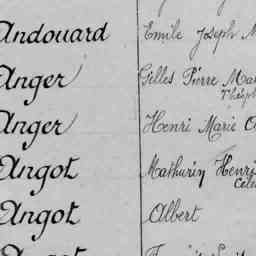 Andouard Emile Joseph M
Anger Gilles Pierre Ma
Théoph
Anger Henri Marie
Angot Mathurin Henri
Cele
Angot Albert
Angot